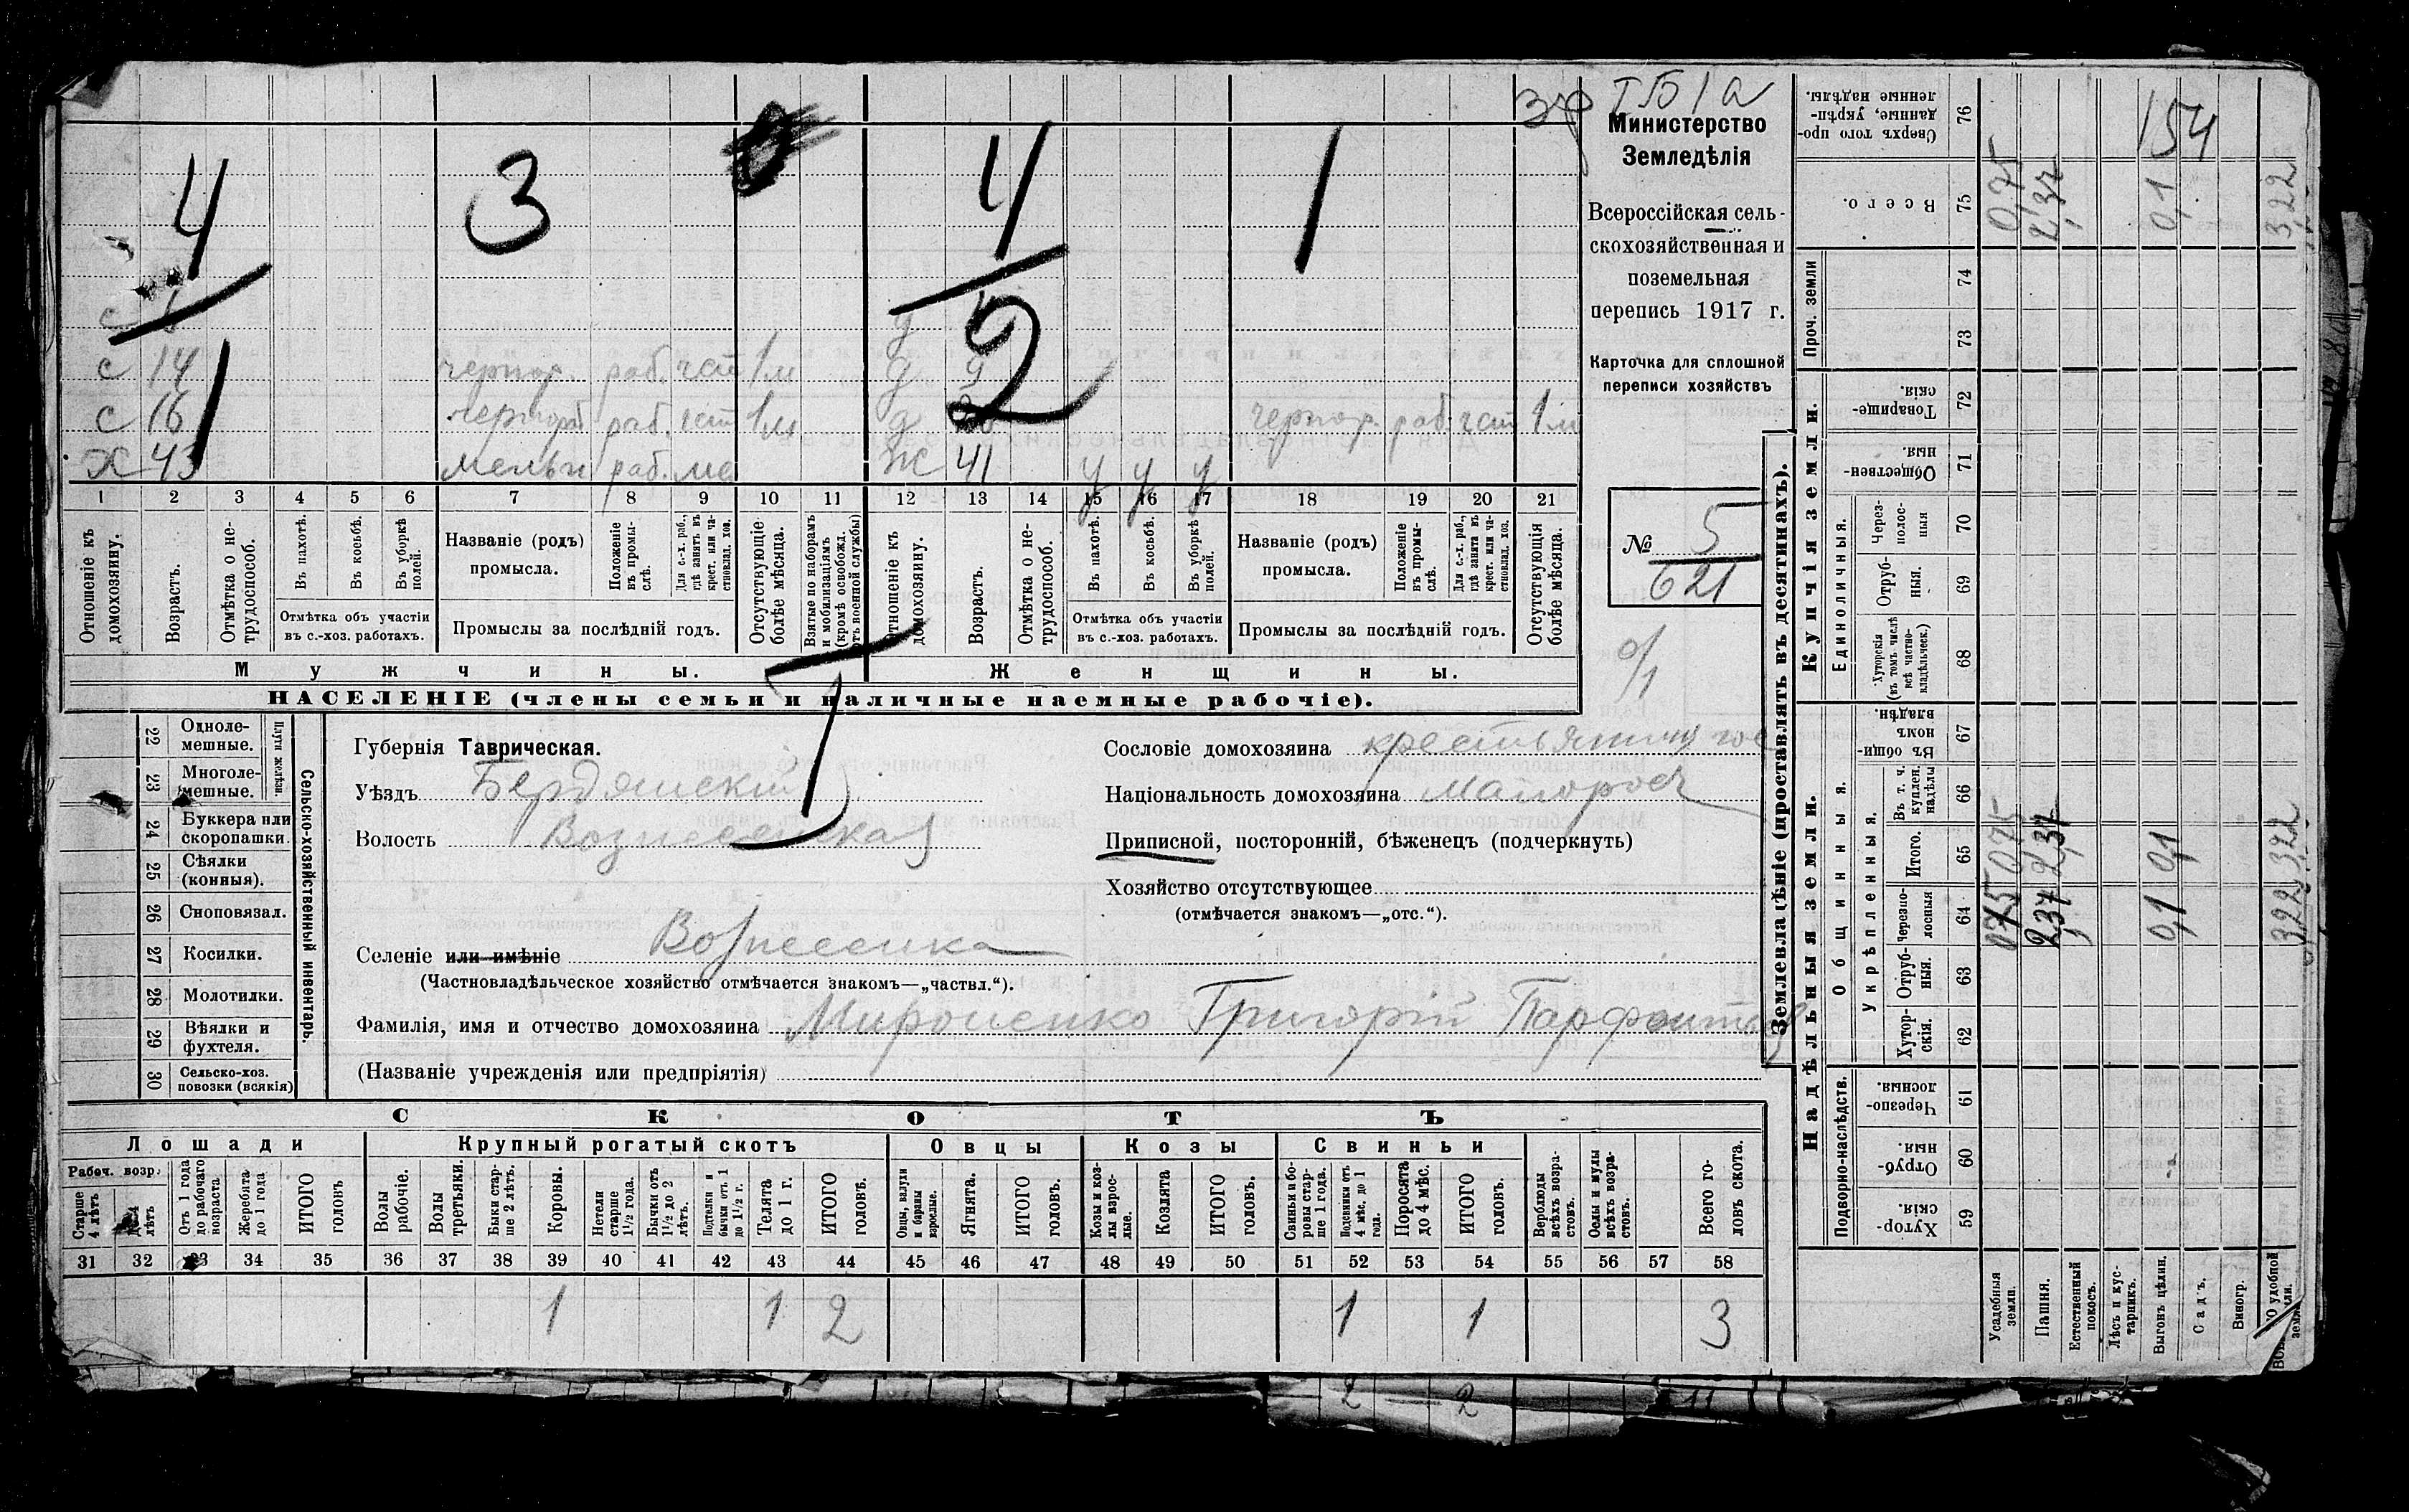 ТБ 1 а
Министерство
Земледѣлія
Всероссійская сель-
скохозяйственная и
поземельная
перепись 1917 г.
Карточка для сплошной
переписи хозяйствъ
№ 5
621
4 3 4 1
1 2
с 14 чернор. раб. част 1 м д 9
с 16 чернораб раб. част 1 м д чернор. раб. част 1 м
Х 43 раб. Ж 41 у у у
1 2 3 4 5 6 7 8 9 10 11 12 13 14 15 16 17 18 19 20 21
Отношеніе къ домохозяину.
Возрастъ.
Отмѣтка о не-трудоспособ.
Въ пахотѣ.
Въ косьбѣ.
Въ уборкѣ полей.
Отмѣтка объ участіи
въ с.-хоз. работахъ.
Названіе (родъ)
промысла.
Положеніе въ промы-слѣ.
Для с.-х. раб., гдѣ занятъ въ крест. или ча-стновлад. хоз.
Промыслы за послѣдній годъ.
Отсутствующіе болѣе мѣсяца.
Взятые по наборамъ и мобилизаціямъ (кромѣ освобожд. отъ военной службы)
Отношеніе къ домохозяину.
Возрастъ.
Отмѣтка о не-трудоспособ.
Въ пахотѣ.
Въ косьбѣ.
Въ уборкѣ полей.
Отмѣтка объ участіи
въ с.-хоз. работахъ.
Названіе (родъ)
промысла.
Положеніе въ промы-слѣ.
Для с.-х. раб., гдѣ занята въ крест. или ча-стновлад. хоз.
Промыслы за послѣдній годъ.
Отсутствующія болѣе мѣсяца.
Мужчины. Женщины.
НАСЕЛЕНІЕ (члены семьи и наличные наемные рабочіе).
22 Одноле-мешные.
23 Многоле-мешные.
Плуги желѣзн.
24 Буккера или скоропашки.
25 Сѣялки (конныя).
26 Сноповязал.
27 Косилки.
28 Молотилки.
29 Вѣялки и фухтеля.
30 Сельско-хоз. повозки (всякія)
Сельско-хозяйственный инвентарь.
Губернія Таврическая.
Уѣздъ Бердянскій
Волость Вознесенская
Селеніе или имѣніе Вознесенка
(Частновладѣльческое хозяйство отмѣчается знакомъ—„частвл.“).
Фамилія, имя и отчество домохозяина Мироненко Григорій
(Названіе учрежденія или предпріятія)
Сословіе домохозяина
Національность домохозяина малоросъ
Приписной, посторонній, бѣженецъ (подчеркнуть)
Хозяйство отсутствующее
(отмѣчается знакомъ—„отс.“).
СКОТЪ
Лошади Крупный рогатый скотъ Овцы Козы Свиньи
Рабоч. возр.
Старше 4 лѣтъ
До 4 лѣтъ
Отъ 1 года до рабочаго возраста
Жеребята до 1 года
ИТОГО головъ
Волы рабочіе.
Волы третьяки.
Быки стар-ше 2 лѣтъ.
Коровы.
Нетели старше 1½ года.
Бычки отъ 1½ до 2 лѣтъ.
Подтелки и бычки отъ 1 до 1½ г.
Телята до 1 г.
ИТОГО головъ.
Овцы, валухи и бараны взрослые.
Ягнята.
ИТОГО головъ.
Козы и коз-лы взрос-лые.
Козлята
ИТОГО головъ.
Свиньи и бо-ровы стар-ше 1 года.
Подсвинки отъ 4 мѣс. до 1 года.
Поросята до 4 мѣс.
ИТОГО головъ.
Верблюды всѣхъ возра-стовъ.
Ослы и мулы всѣхъ возра-стовъ.
Всего го-ловъ скота.
31 32 33 34 35 36 37 38 39 40 41 42 43 44 45 46 47 48 49 50 51 52 53 54 55 56 57 58
1 1 2 1 1 3
Землевладѣніе (проставлять въ десятинахъ).
Надѣльныя земли. Купчія земли.
Подворно-наслѣдств.
Общинныя.
Укрѣпленныя.
Единоличныя.
Проч. земли
Хутор-скія. 59
Отруб-ныя. 60
Черезпо-лосныя. 61
Хутор-скія. 62
Отруб-ныя. 63
Черезпо-лосныя 64
Итого. 65
Въ т. ч. куплен. надѣлы 66
Въ общи-номъ владѣн. 67
Хуторскія (въ томъ числѣ всѣ частно-владѣльческ.) 68
Отруб-ныя. 69
Через-полос-ныя 70
Обществен-ныя. 71
Товарище-скія. 72
73
74
Всего. 75
Сверхъ того про-данные, укрѣп-ленные надѣлы. 76
Усадебныя земли. 0,75 0,75 0,75
Пашня. 2,37 2,37 2,37
Естественный покосъ.
Лѣсъ и кус-тарникъ.
Выгонъ цѣлин. 0,1 0,1 0,1 154
Садъ.
Виногр.
3,22 3,22 3,22
2 2 11